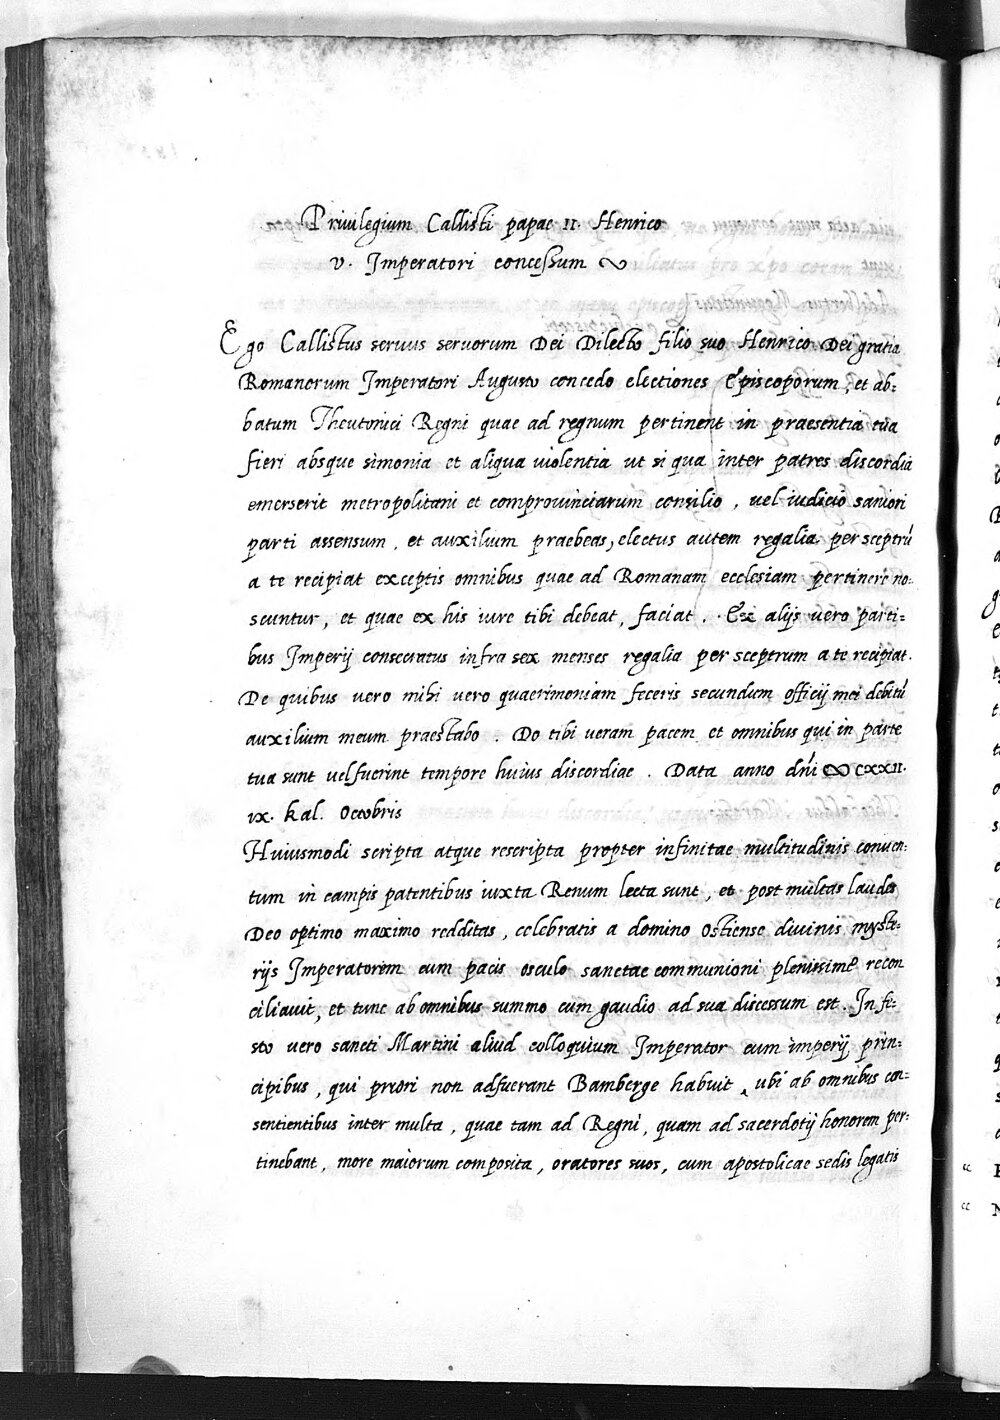 Priuilegium Callisti papae II. Henrico
V. Imperatori concessum
Ego Callistus seruus seruorum Dei Dilecto filio suo Henrico Dei gratia
Romanorum Imperatori Augusto concedo electiones Episcoporum, et ab=
batum Theutonici Regni quae ad regnum pertinent in praesentia tua
fieri absque simonia et aliqua uiolentia ut si qua inter patres discordia
emerserit metropolitani et comprouinciarum consilio, uel iudicio saniori
parti assensum, et auxilium praebeas, electus autem regalia per sceptrū
a te recipiat exceptis omnibus quae ad Romanam ecclesiam pertinere no=
scuntur, et quae ex his iure tibi debeat, faciat. Ex alijs uero parti=
bus Imperij consecratus infra sex menses regalia per sceptrum a te recipiat.
De quibus uero mihi uero quaerimoniam feceris secundum officij mei debitū
auxilium meum praestabo. Do tibi ueram pacem et omnibus qui in parte
tua sunt uel fuerint tempore huius discordiae. Data anno dñi ∞ CXXII.
IX. Kal. Octobris
Huiusmodi scripta atque rescripta propter infinitae multitudinis conuen=
tum in campis patentibus iuxta Renum lecta sunt, et post multas laudes
Deo optimo maximo redditas, celebratis a domino Ostiense diuinis myste=
rijs Imperatorem cum pacis osculo sanctae communioni plenissime recon
ciliauit, et tunc ab omnibus summo cum gaudio ad sua discessum est. In fe=
sto uero sancti Martini aliud colloquium Imperator cum imperij prin=
cipibus, qui priori non adfuerant Bamberge habuit, ubi ab omnibus con=
sentientibus inter multa, quae tam ad Regni, quam ad sacerdotij honorem per=
tinebant, more maiorum composita, oratores suos, cum apostolicae sedis legatis